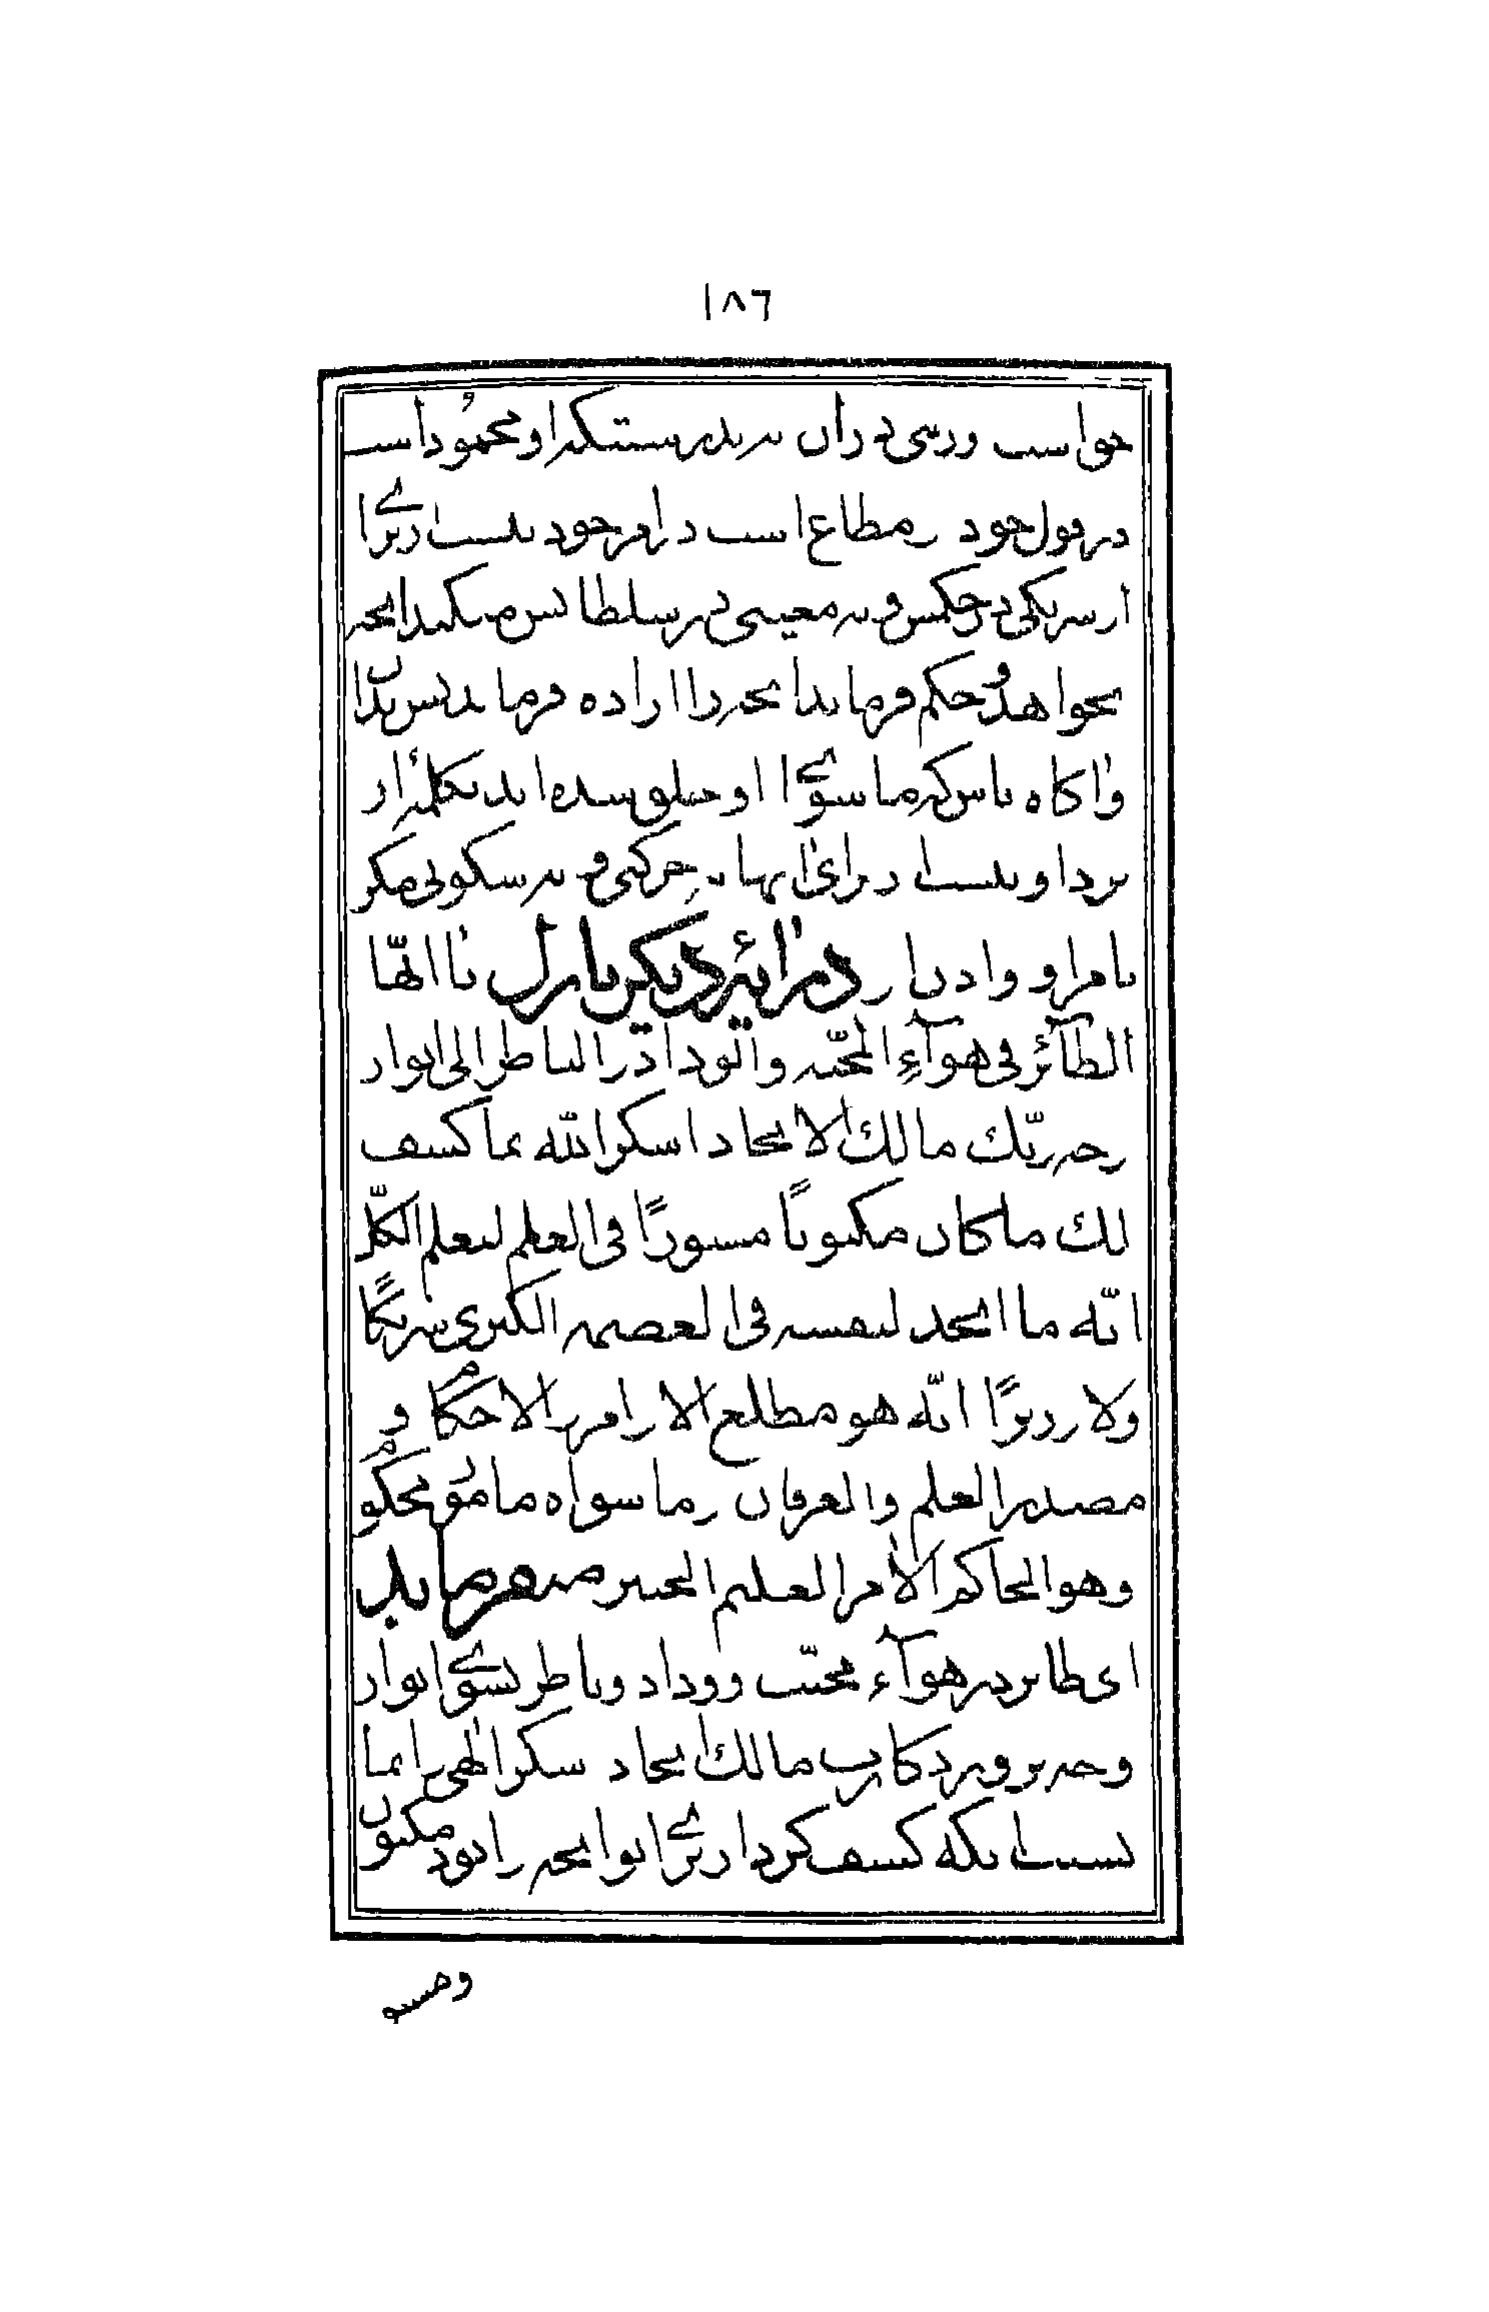 ١٨٦
خواست ورسی در آن به بدرستیکه او محمود است
در قول خود و مطاع است در امر خود نیست از برای
او شریکی در حکمش و نه معینی در سلطانش میکند آنچه
بخواهد و حکم فرماید آنچه را اراده فرماید پس بدان
و آگاه باش که ماسوای او خلق شده‌اند بکلمهٔ از
نزد او نیست از برای آنها حرکتی و نه سکونی مگر
بامر او و اذن او در آیه دیگر نازل یا ایّها
الطّآئر فی هوآء المحبّه والوداد و الناظر الی انوار
وجه ربّک مالک الایجاد اشکر الله بما کشف
لک ما کان مکنوناً مستوراً فی العلم لیعلم الکلّ
انّه ما اتّخذ لنفسه فی العصمه الکبری شریکاً
ولا وزیراً انّه هو مطلع الاوامر و الاحکام و
مصدر العلم والعرفان و ما سواه مامور محکوم
وهو الحاکم الآمر العلیم الخبیر میفرماید
ای طائر در هوآء محبّت و وداد و ناظر بسوی انوار
وجه پروردکارت مالک ایجاد شکر الهی را بما
نست اینکه کشف کرد از برای تو آنچه را بود مکنون